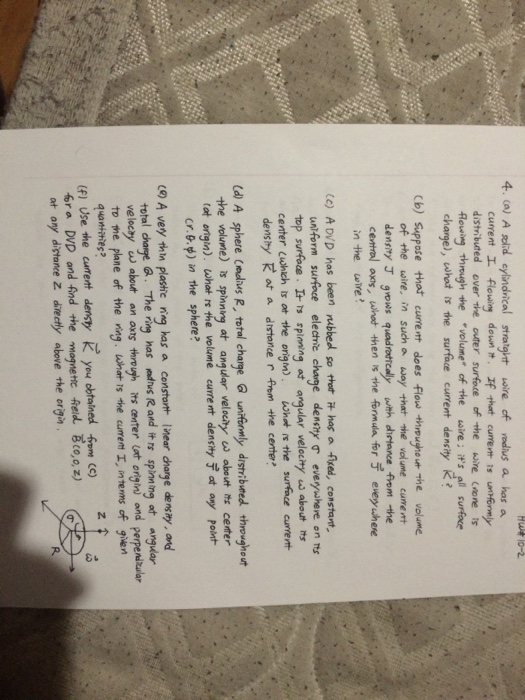 HW#10-2
4. (a) A solid cylindrical straight wire of radius a has a
current I flowing down it. If that current is uniformly
distributed over the outer surface of the wire (none is
flowing through the "volume" of the wire; it's all surface
charge), what is the surface current density K?
(b) Suppose that current does flow throughout the volume
of the wire, in such a way that the volume current
density J grows quadratically with distance from the
central axis, what then is the formula for J everywhere
in the wire?
(c) A DVD has been rubbed so that it has a fixed, constant,
uniform surface electric charge density σ everywhere on its
top surface. It is spinning at angular velocity ω about its
center (which is at the origin). What is the surface current
density K at a distance r from the center?
(d) A sphere (radius R, total charge Q uniformly distributed throughout
the volume) is spinning at angular velocity ω about its center
(at origin). What is the volume current density J at any point
(r, θ, φ) in the sphere?
(e) A very thin plastic ring has a constant linear charge density, and
total charge Q. The ring has radius R and it is spinning at angular
velocity ω about an axis through its center (at origin) and perpendicular
to the plane of the ring. What is the current I, in terms of given
quantities?
(f) Use the current density K you obtained from (c)
for a DVD and find the magnetic field B(0,0,z)
at any distance z directly above the origin.
z ω
σ
R